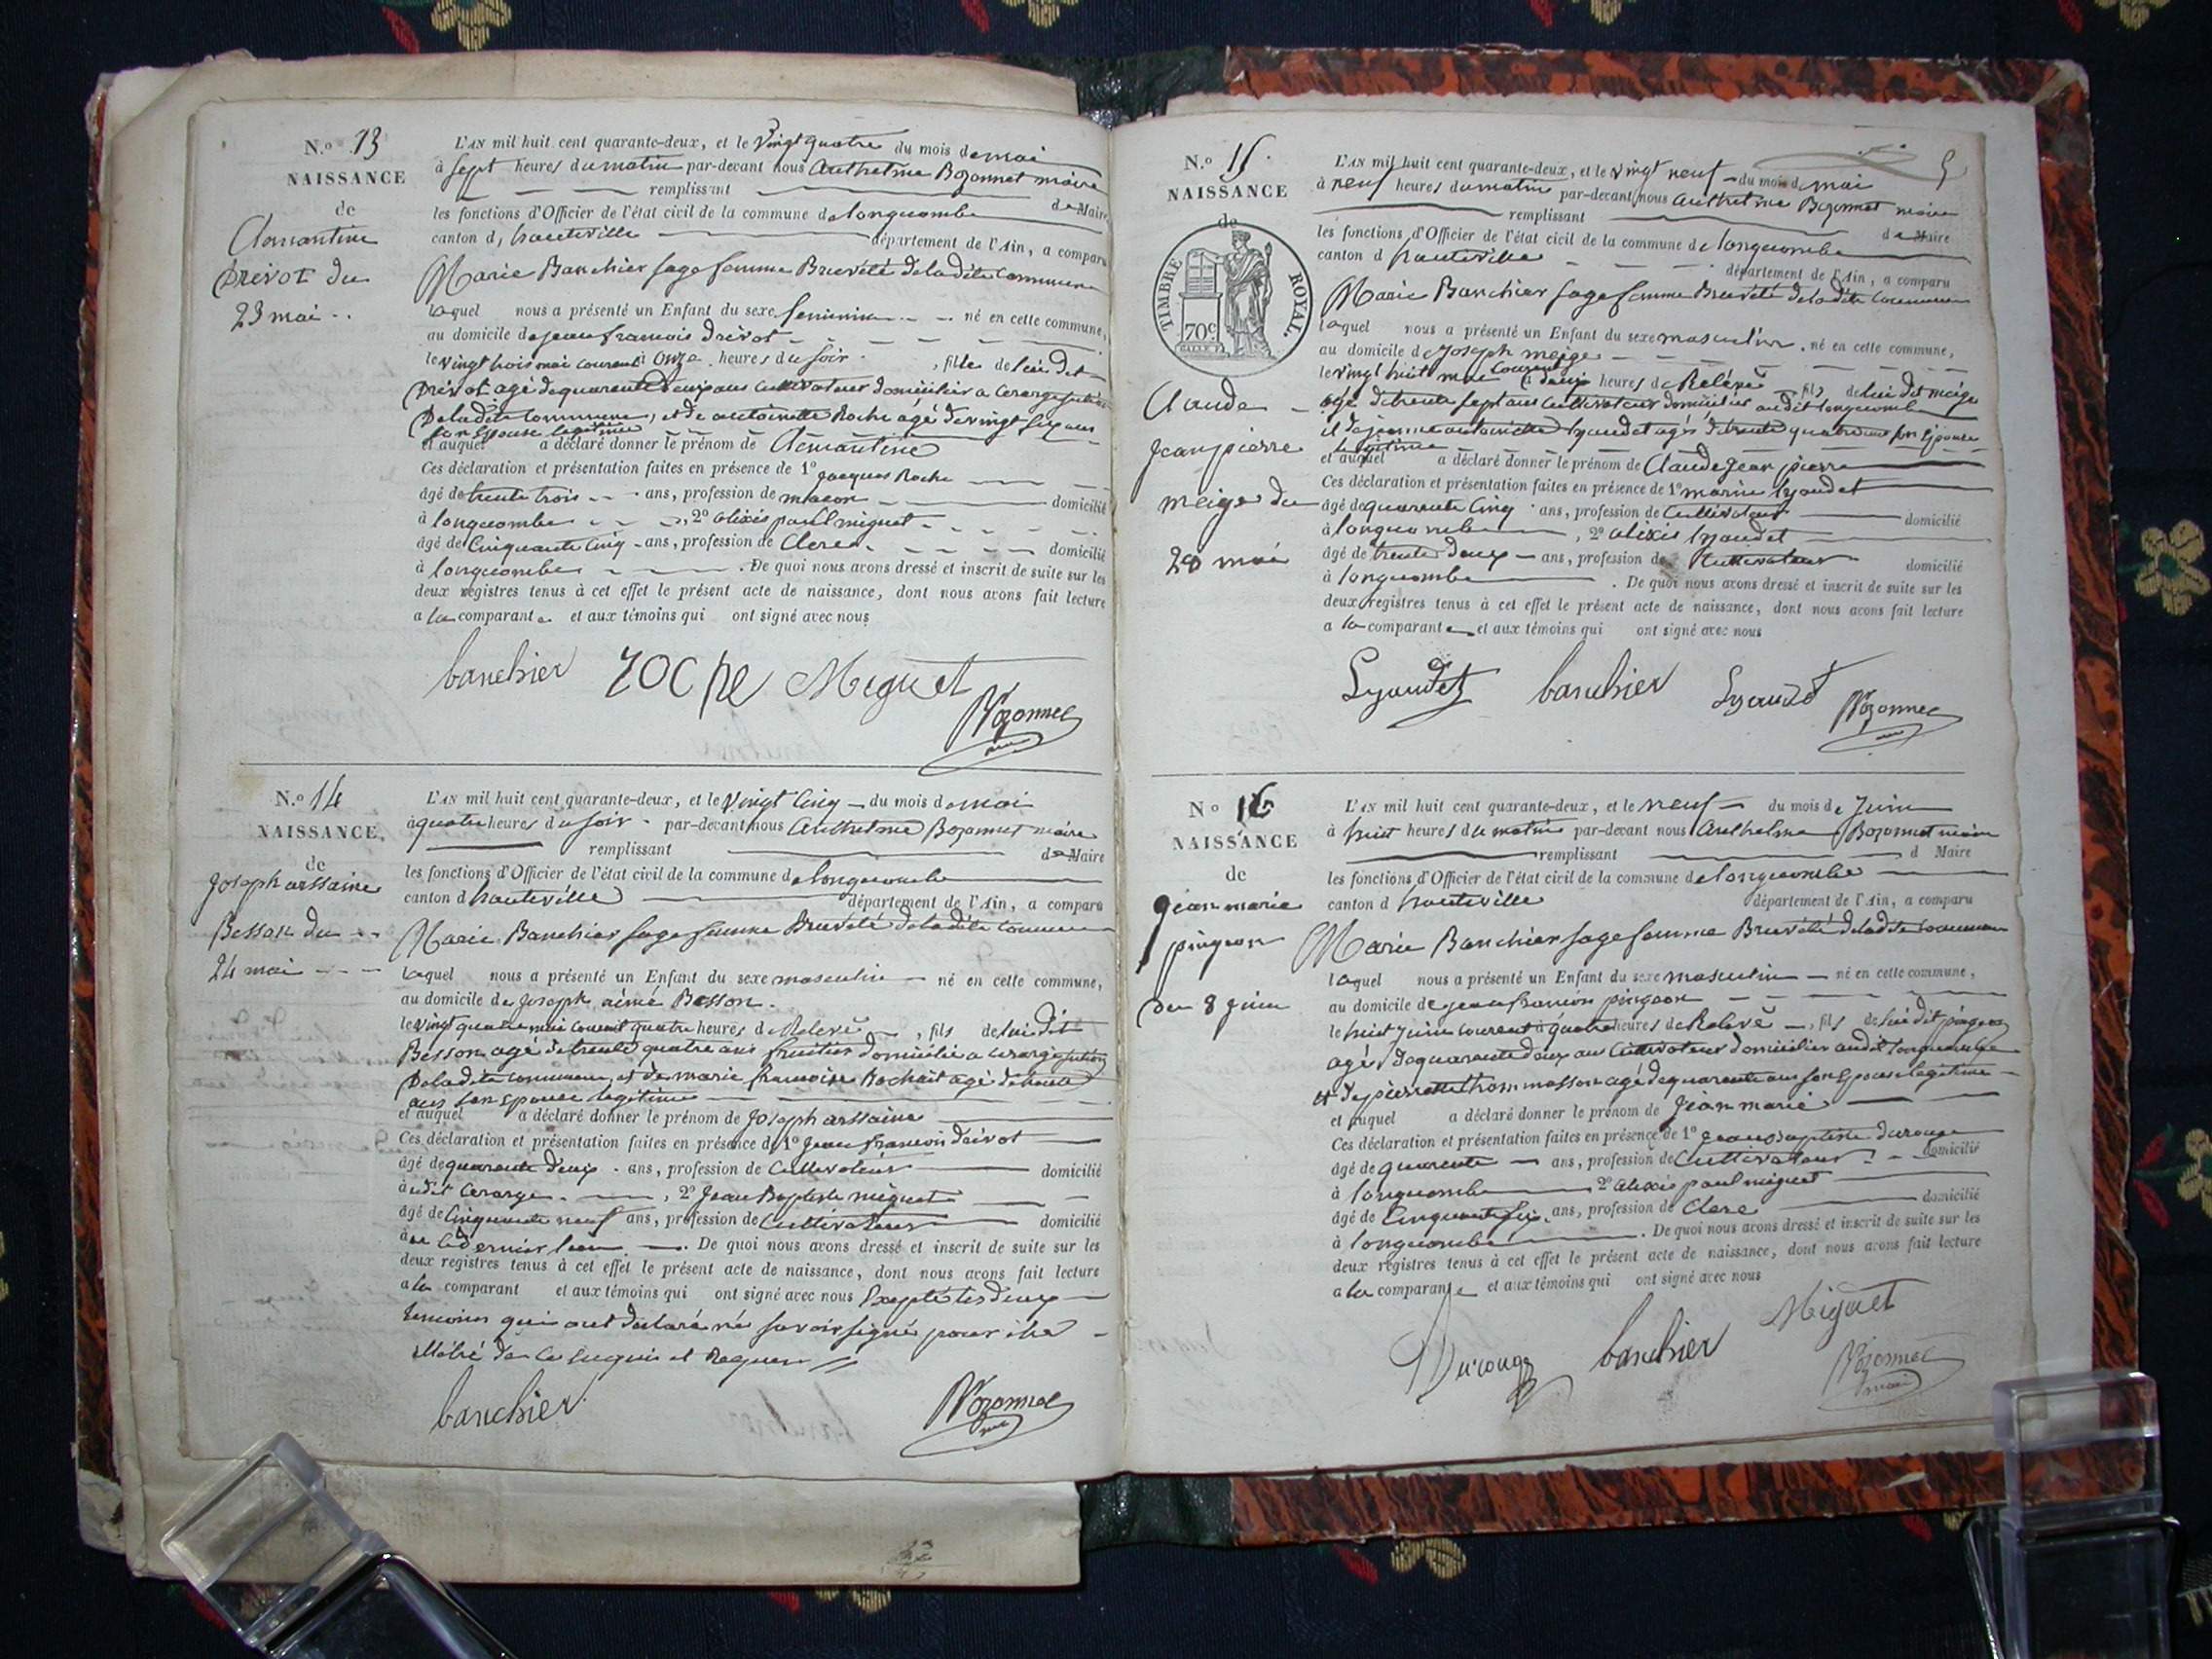 N.o 13
NAISSANCE
de
Clamantine
Drivot du
23 mai
L'AN mil huit cent quarante-deux, et le Vingt quatre du mois de mai
à sept heures du matin par-devant nous Anthelme Bozonnet maire
remplissant de Maire
les fonctions d'Officier de l'état civil de la commune de longecombe
canton d, hauteville département de l'Ain, a comparu
Marie Banchier sage femme Brevété de la dite commune
laquel nous a présenté un Enfant du sexe feminin né en cette commune,
au domicile de jean francois drivot
le vingt trois mai courent à onze heures du soir, fille de lui dit
Drivot agé de quarente deux ans cultivateur domicilier a
De la dite commune, et de antoinette Roche agé de vingt six ans
son Epouse legitime
et auquel a déclaré donner le prénom de Clamantine
Ces déclaration et présentation faites en présence de 1o Jacques Roche
âgé de trente trois ans, profession de macon domicilié
à longecombe, 2o alixis paul miguet
âgé de Cinquante Cinq ans, profession de Clerc domicilié
à longecombe. De quoi nous avons dressé et inscrit de suite sur les
deux registres tenus à cet effet le présent acte de naissance, dont nous avons fait lecture
a la comparante et aux témoins qui ont signé avec nous
banchier roche Miguet
Bozonnet
N.o 14
NAISSANCE,
de
Joseph arssaine
Besson du
24 mai
L'AN mil huit cent quarante-deux, et le Vingt Cinq du mois de mai
à quatre heures du soir par-devant nous Anthelme Bozonnet maire
remplissant de Maire
les fonctions d'Officier de l'état civil de la commune de longecombe
canton d hauteville département de l'Ain, a comparu
Marie Banchier sage femme Brevété de la dite commune
laquel nous a présenté un Enfant du sexe masculin né en cette commune,
au domicile de Joseph aimé Besson
le vingt quatre mai courent quatre heures de Relevé, fils de lui dit
Besson agé de trente quatre ans fruitier domicilié a
De la dite commune, et de marie francoise Rochait agé de trente
ans son epouse legitime
et auquel a déclaré donner le prénom de Joseph arssaine
Ces déclaration et présentation faites en présence de 1o Jean francois drivot
âgé de quarante deux ans, profession de Cultivateur domicilié
à, 2o Jean Baptiste miguet
âgé de Cinquante neuf ans, profession de Cultivateur domicilié
à ce dernier lieu. De quoi nous avons dressé et inscrit de suite sur les
deux registres tenus à cet effet le présent acte de naissance, dont nous avons fait lecture
a la comparant et aux témoins qui ont signé avec nous Excepté les deux
temoins qui ont déclaré né savoir signé pour
de ce enquis et Requer
banchier Bozonnet
N.o 15
NAISSANCE
de
TIMBRE ROYAL.
70c
Claude
Jean pierre
meige du
28 mai
5
L'AN mil huit cent quarante-deux, et le vingt neuf du mois de mai
à neuf heures du matin par-devant nous Anthelme Bozonnet maire
remplissant de Maire
les fonctions d'Officier de l'état civil de la commune de longecombe
canton d hauteville département de l'Ain, a comparu
Marie Banchier sage femme Brevété de la dite commune
laquel nous a présenté un Enfant du sexe masculin, né en cette commune,
au domicile de Joseph meige
le vingt huit mai courent à deux heures de Relévé fils de lui dit meige
agé de trente sept ans cultivateur domicilier au dit longecombe
et de jeanne antoinette lyaudet agés de trente quatre ans son Epouse
legitime
et auquel a déclaré donner le prénom de Claude Jean pierre
Ces déclaration et présentation faites en présence de 1o marin lyaudet
âgé de quarente Cinq ans, profession de Cultivateur domicilié
à longecombe, 2o alixis lyaudet
âgé de trente deux ans, profession de Cultivateur domicilié
à longecombe. De quoi nous avons dressé et inscrit de suite sur les
deux registres tenus à cet effet le présent acte de naissance, dont nous avons fait lecture
a la comparante et aux témoins qui ont signé avec nous
Lyaudet banchier Lyaudet Bozonnet
No 16
NAISSANCE
de
jean marie
pingeon
du 8 juin
L'AN mil huit cent quarante-deux, et le neuf du mois de Juin
à huit heures du matin par-devant nous Anthelme Bozonnet maire
remplissant d Maire
les fonctions d'Officier de l'état civil de la commune de longecombe
canton d hauteville département de l'Ain, a comparu
Marie Banchier sage femme Brevété de la dite commune
laquel nous a présenté un Enfant du sexe masculin né en cette commune,
au domicile de jean francois pingeon
le huit juin courent à quatre heures de Relevé, fils de lui dit pingeon
agé de quarante deux ans cultivateur domicilier au dit longecombe
et de pierrette thommasson agé de quarente ans son Epouse legitime
et auquel a déclaré donner le prénom de Jean marie
Ces déclaration et présentation faites en présence de 1o jean Baptiste durouge
âgé de quarente ans, profession de Cultivateur domicilié
à longecombe 2o alixis paul miguet
âgé de Cinquante six, ans, profession de Clerc domicilié
à longecombe. De quoi nous avons dressé et inscrit de suite sur les
deux registres tenus à cet effet le présent acte de naissance, dont nous avons fait lecture
a la comparante et aux témoins qui ont signé avec nous
Durouge banchier Miguet
Bozonnet